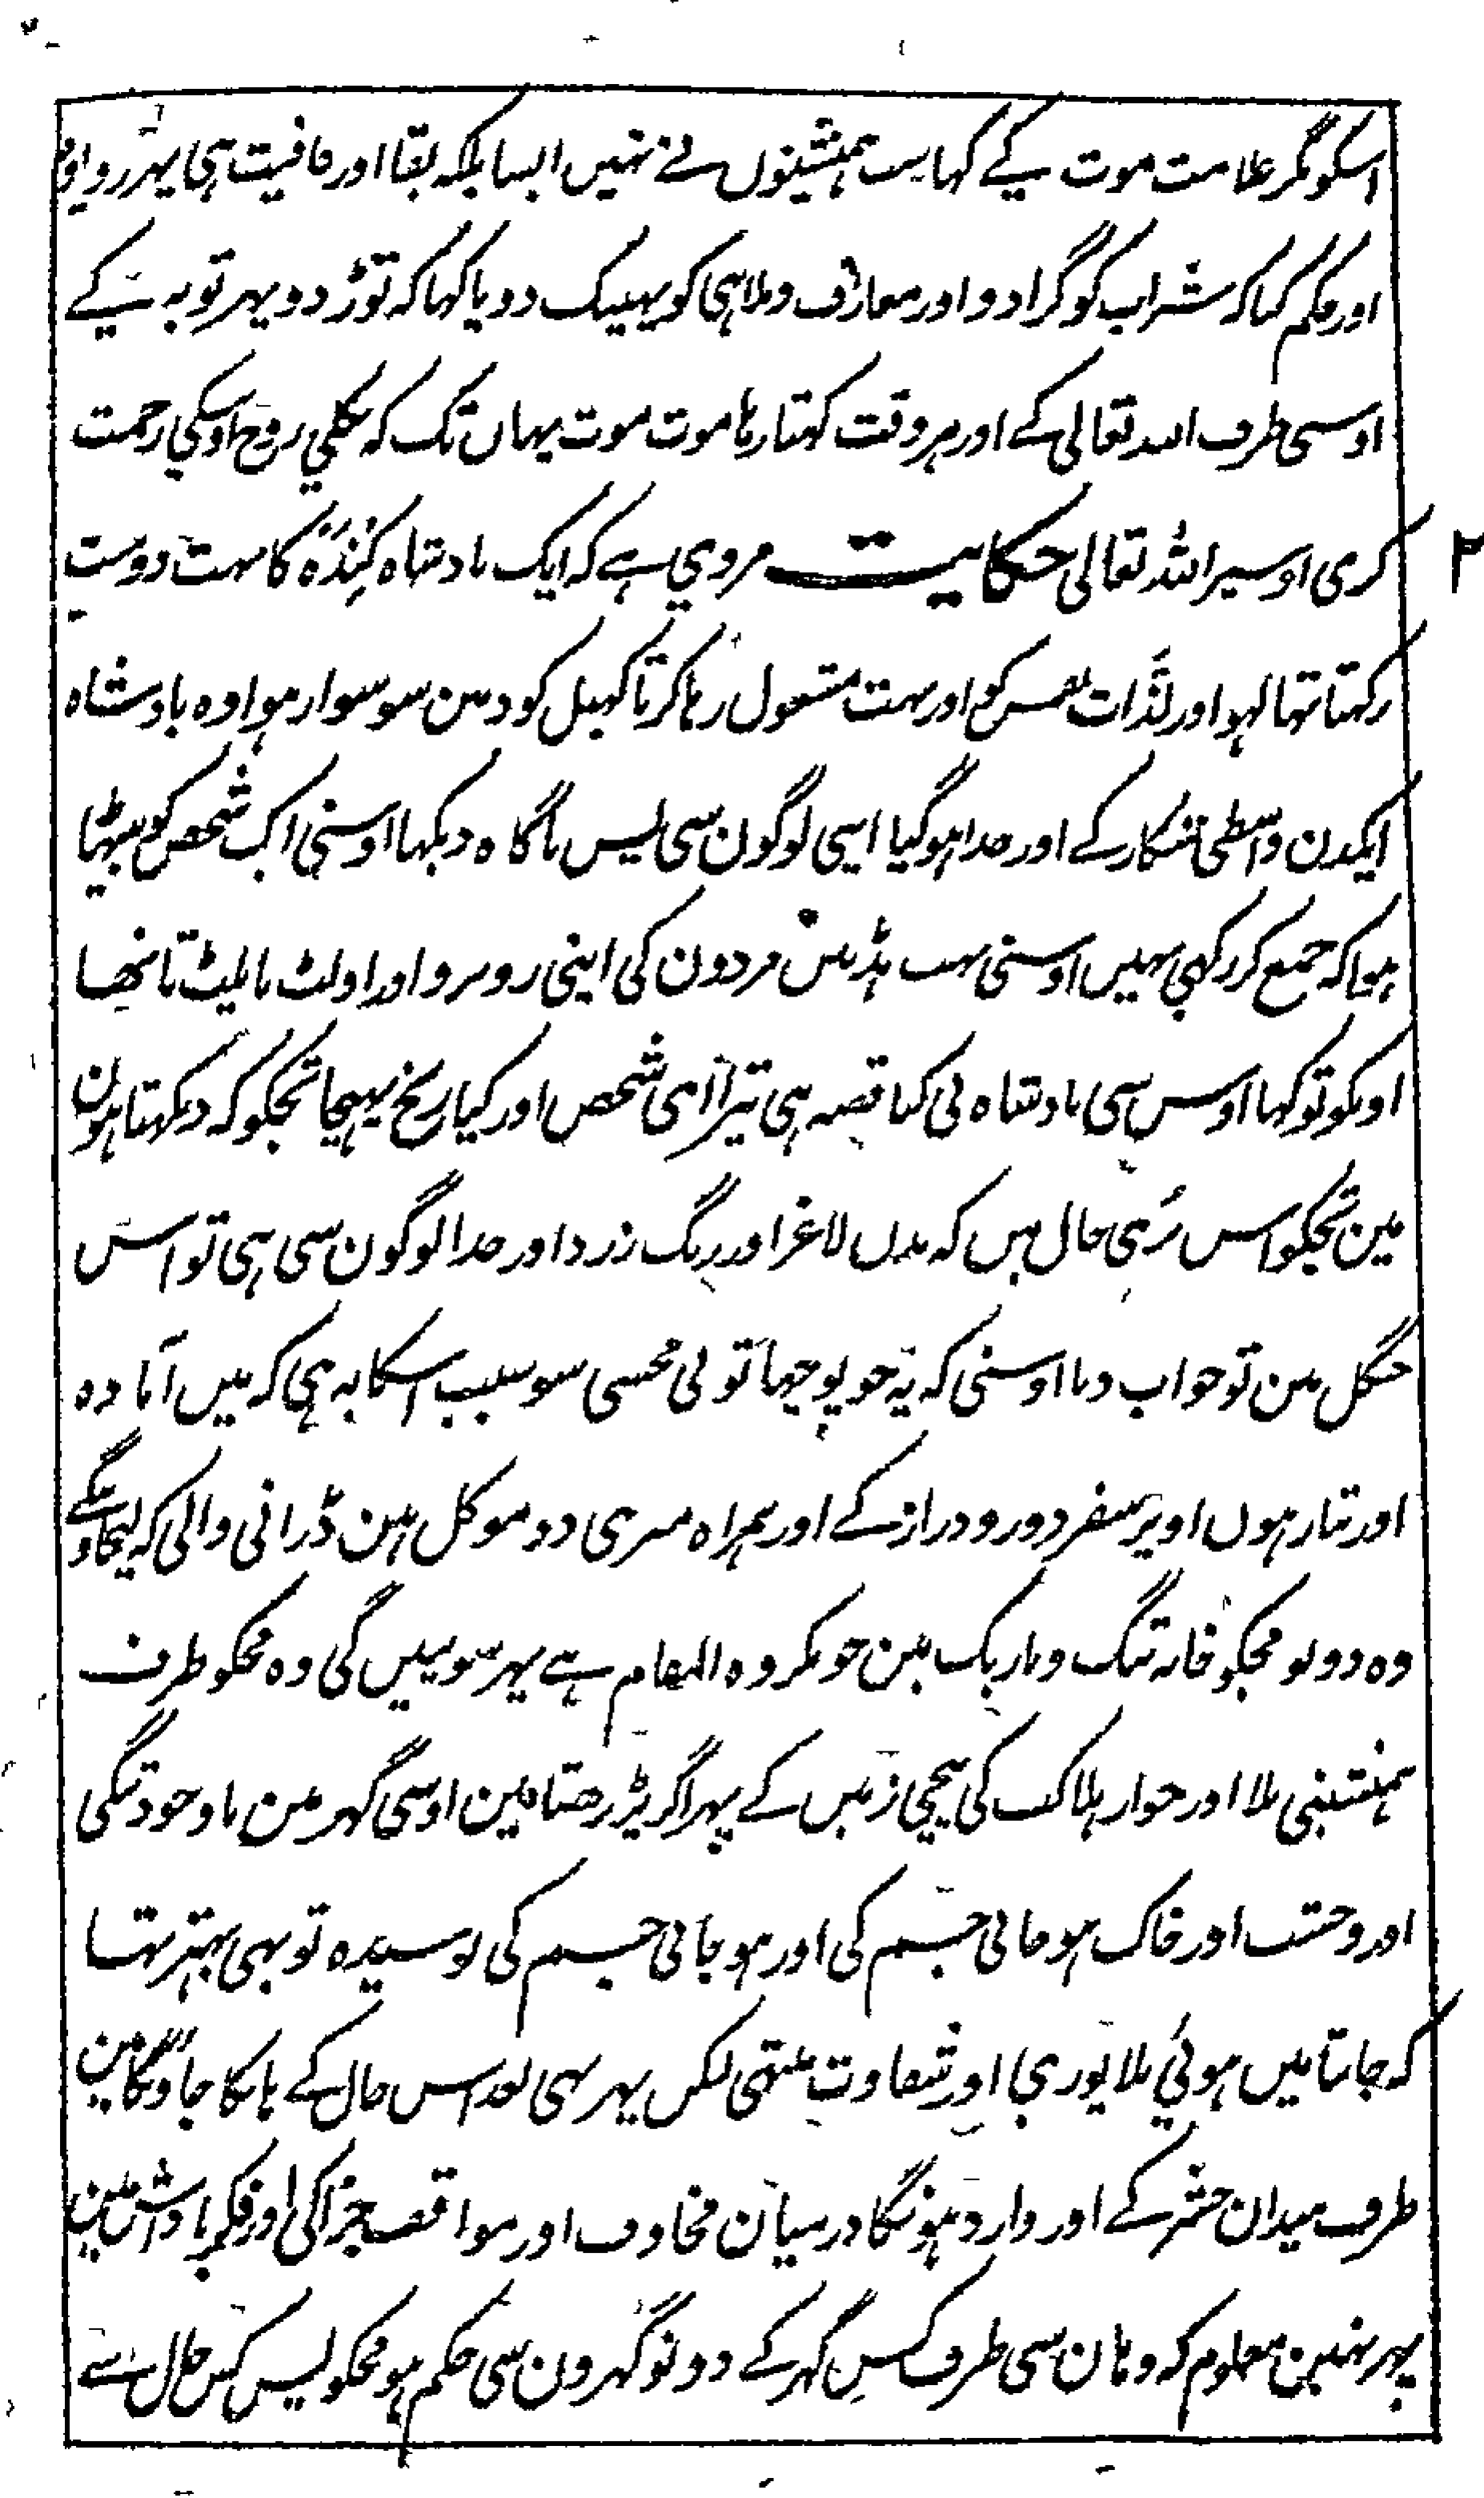 اسکو مگر علامت موت کے کہا سب ہمنشینوں نے نہیں ایسا بلکہ بقا اور عافیت ہی پہر رویا وہ
اور حکم کیا کہ شراب کو گرا دو اور معازف و ملاہی کو پہینک دو یا کہا کہ توڑ دو پہر توبہ کے
اوسی طرف اللہ تعالی کے اور ہر وقت کہتا رہا موت موت یہاں تک کہ نکلی روح اوسکی رحمت
کری اوسپر اللہ تعالی حکایت مروی ہے کہ ایک بادشاہ کِندَہ کا بہت دوست
۲
رکہتا تہا لہو اور لذّات نفس کو اور بہت مشغول رہا کرتا کہیل کود مین سو سوار ہوا وہ بادشاہ
ایکدن واسطی شکار کے اور جدا ہو گیا اپنی لوگون سی پس ناگاہ دیکہا اوسنی ایک شخص کو بیٹہا
ہوا کہ جمع کر رکہی ہیں اوسنی بہت ہڈیں مردون کی اپنی روبرو اور اولٹ پلیٹ تا تہا
اونکو تو کہا اوس سی بادشاہ نی کیا قصہ ہی تیرا ای شخص اور کیا رنج پہنچا تجکو کہ دیکہتا ہون
مین تجکو اس بُری حال میں کہ بدن لاغر اور رنگ زرد اور جدا لوگون سی ہی تو اس
جنگل مین تو جواب دیا اوسنی کہ یہ جو پوچہا تو نی مجسی سو سبب اسکا یہ ہی کہ میں آمادہ
اور تیار ہوں اوپر سفر دور و دراز کے اور ہمراہ میری دو موکل ہین ڈرانی والی کہ لیجاوینگے
وہ دونو مجکو خانہ تنگ و تاریک مین جو مکروہ المقام ہے پہر سونپیں گی وہ مجکو طرف
ہمنشینی بلا اور جوار ہلاک کی نیچی زمیں کے پہر اگر پڑ رہتا مین اوسی گہر مین باوجود تنگی
اور وحشت اور خاک ہو جانی جسم کی اور ہو جانی جسم کی بوسیدہ تو بہی بہتر تہا
کہ جانتا میں ہوئی بلا پوری اور شقاوت منتہی لیکن پہر بہی بعد اس حال کے ہانکا جاؤنگا مین
طرف میدان حشر کے اور وارد ہونگا درمیان مخاوف اور مواقف جزا کی اور فکر پاداش مین
پہر نہین معلوم کہ وہان سی طرف کس گہر کے دونو گہرون سی حکم ہو مجکو پس کس حال سے